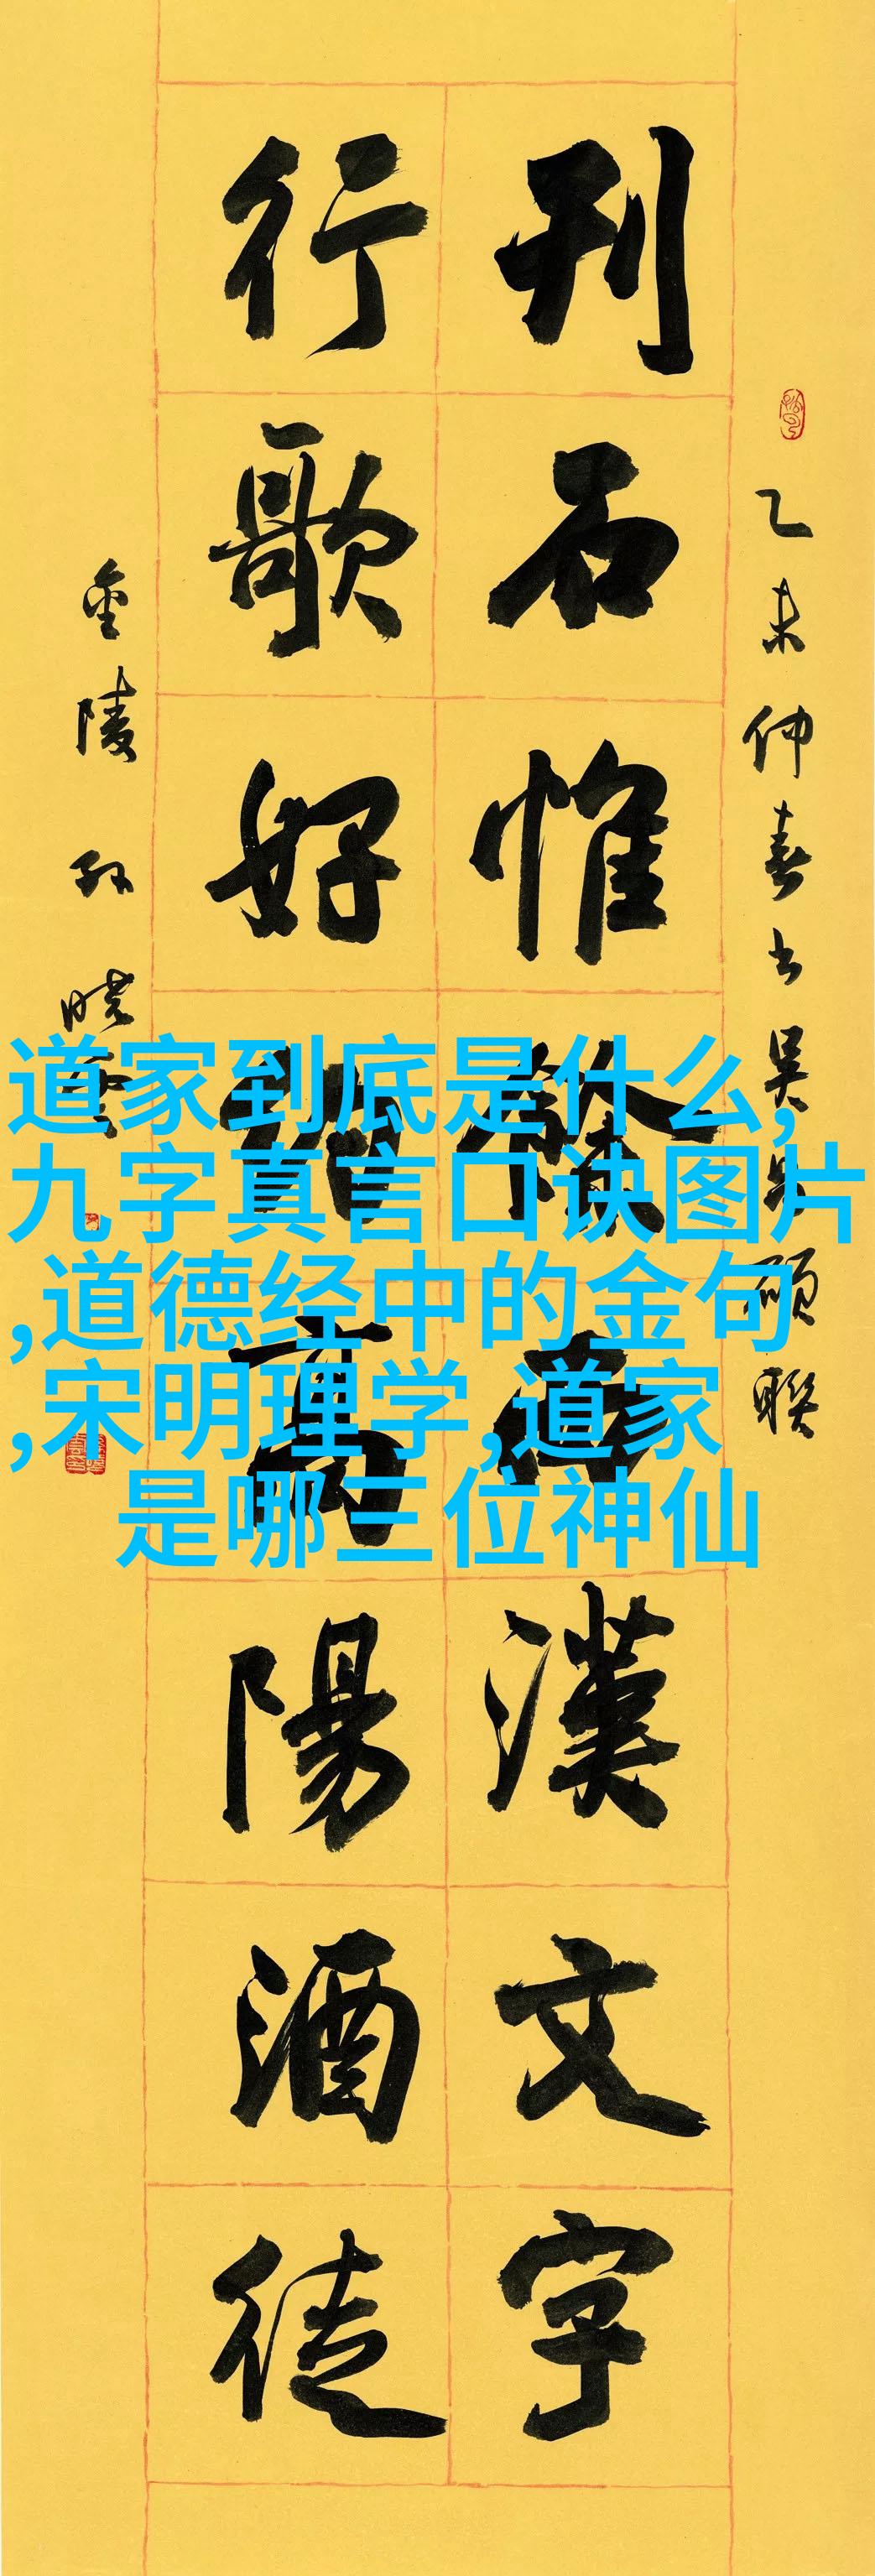 乙未仲春书吴昌碩聯
刊石惟餘漢文字
行歌好高陽酒徒
金陵孙曉雲
道家到底是什么,
九字真言口诀图片
,道德经中的金句
,宋明理学,道家
是哪三位神仙